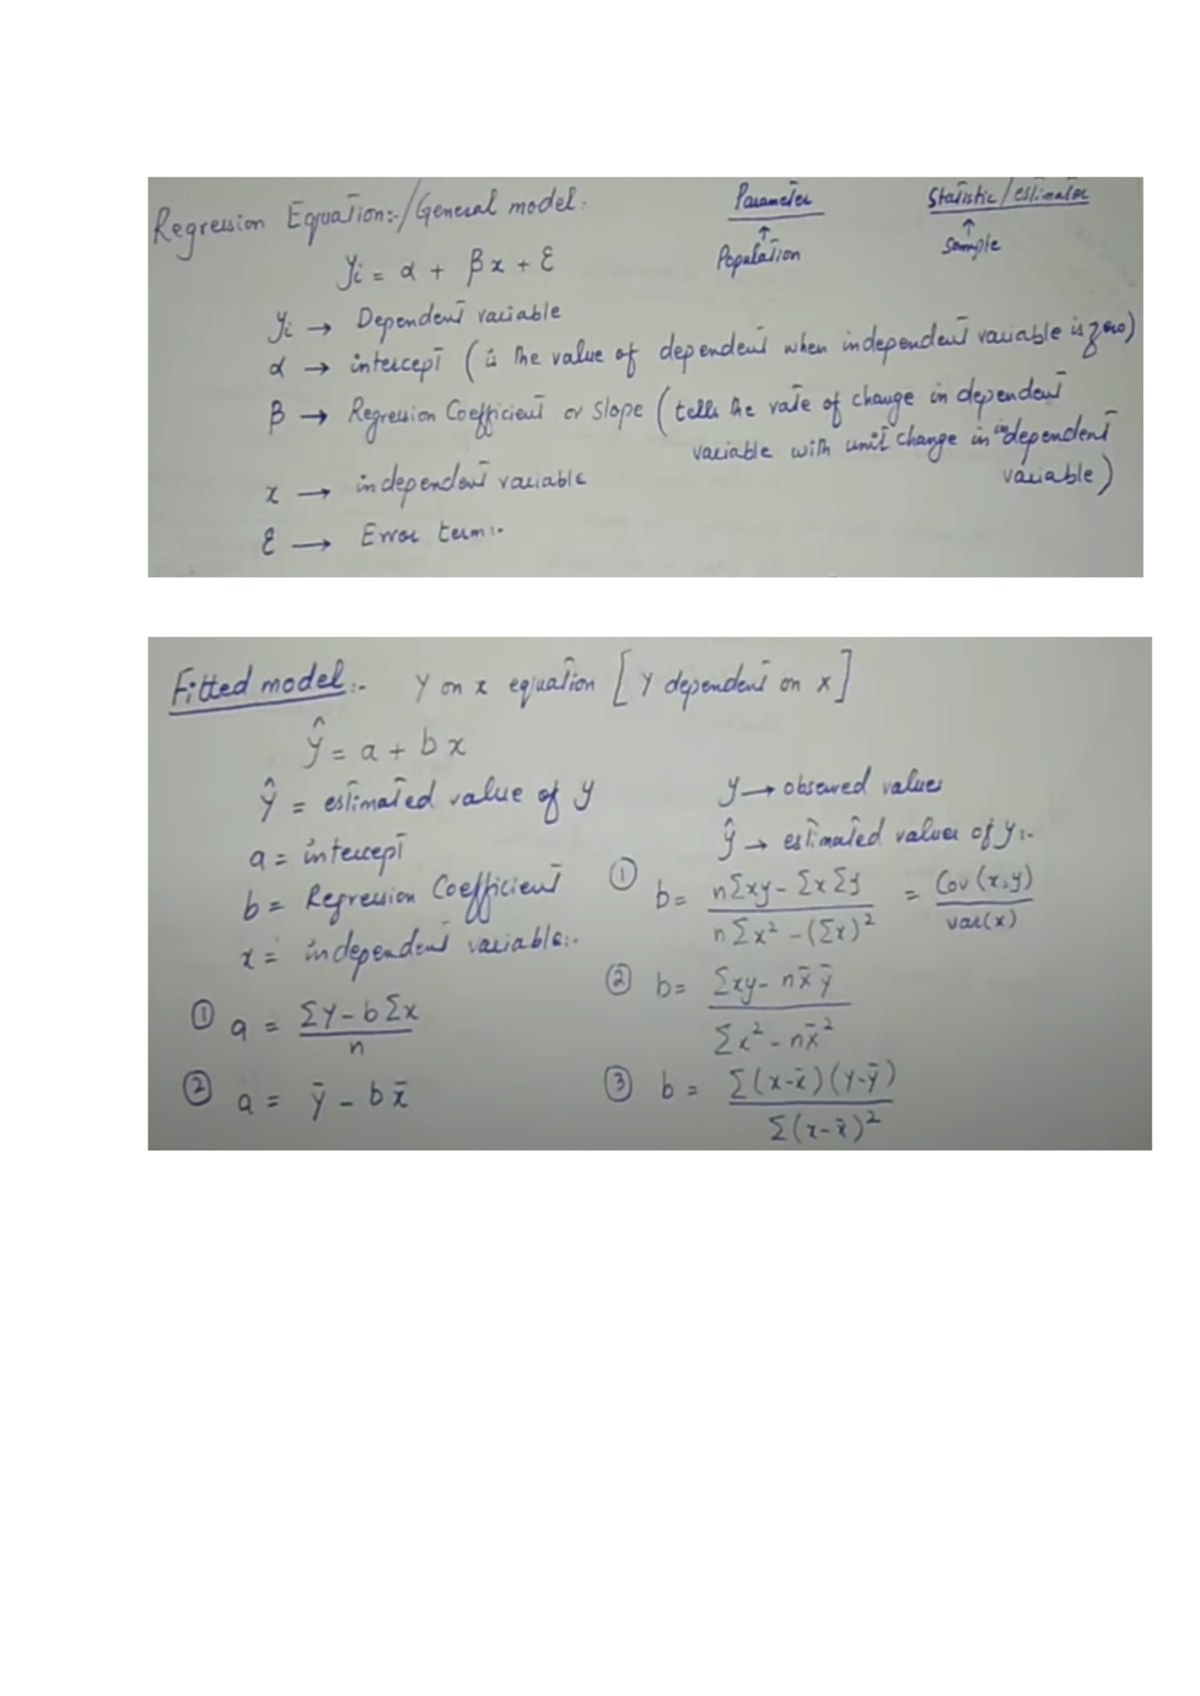 Regression Equation:-/General model:
Parameter
Statistic/estimator
↑
↑
Population
Sample
yi = α + βx + ε
yi → Dependent variable
α → intercept (is the value of dependent when independent variable is zero)
β → Regression Coefficient or slope (tells the rate of change in dependent
variable with unit change in independent
variable)
x → independent variable
ε → Error term:-
Fitted model:- Y on x equation [Y dependent on x]
ŷ = a + bx
Ŷ = estimated value of y
a = intercept
b = Regression Coefficient
x = independent variable:-
① a = (ΣY - bΣx) / n
② a = ȳ - bx̄
y → observed values
ŷ → estimated values of y:-
① b = (nΣxy - ΣxΣy) / (nΣx² - (Σx)²) = Cov(x,y) / var(x)
② b = (Σxy - nx̄ȳ) / (Σx² - nx̄²)
③ b = Σ(x-x̄)(y-ȳ) / Σ(x-x̄)²